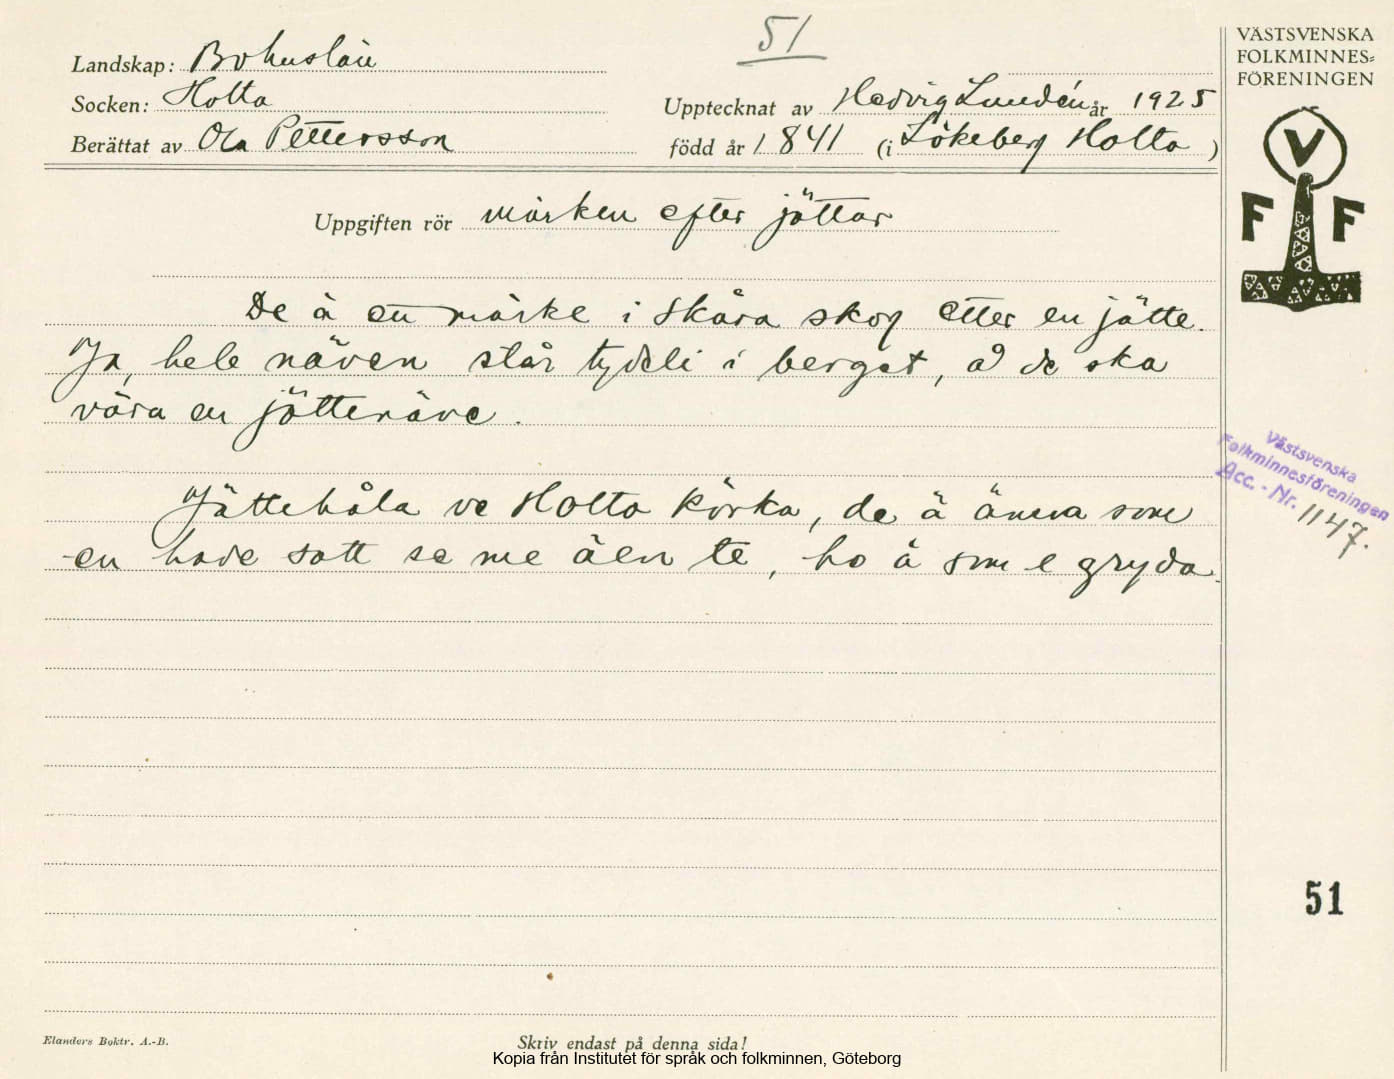 51
VÄSTSVENSKA
FOLKMINNES=
FÖRENINGEN
Landskap: Bohuslän
Socken: Holta
Upptecknat av Hedvig Lundén år 1925
Berättat av Ola Pettersson född år 1841 (i Lökeberg Holta)
V
F F
Uppgiften rör märken efter jättar
De ä ett märke i Skåra skog etter en jätte.
Ja, hele näven står tydeli i berget, å de ska
våra en jättenäve.
Jättehåla ve Holta körka, de ä änna som
en hade satt se me äen te, ho ä som e gryda.
Västsvenska
Folkminnesföreningen
Acc. - Nr. 1147.
51
Elanders Boktr. A.-B.
Skriv endast på denna sida!
Kopia från Institutet för språk och folkminnen, Göteborg